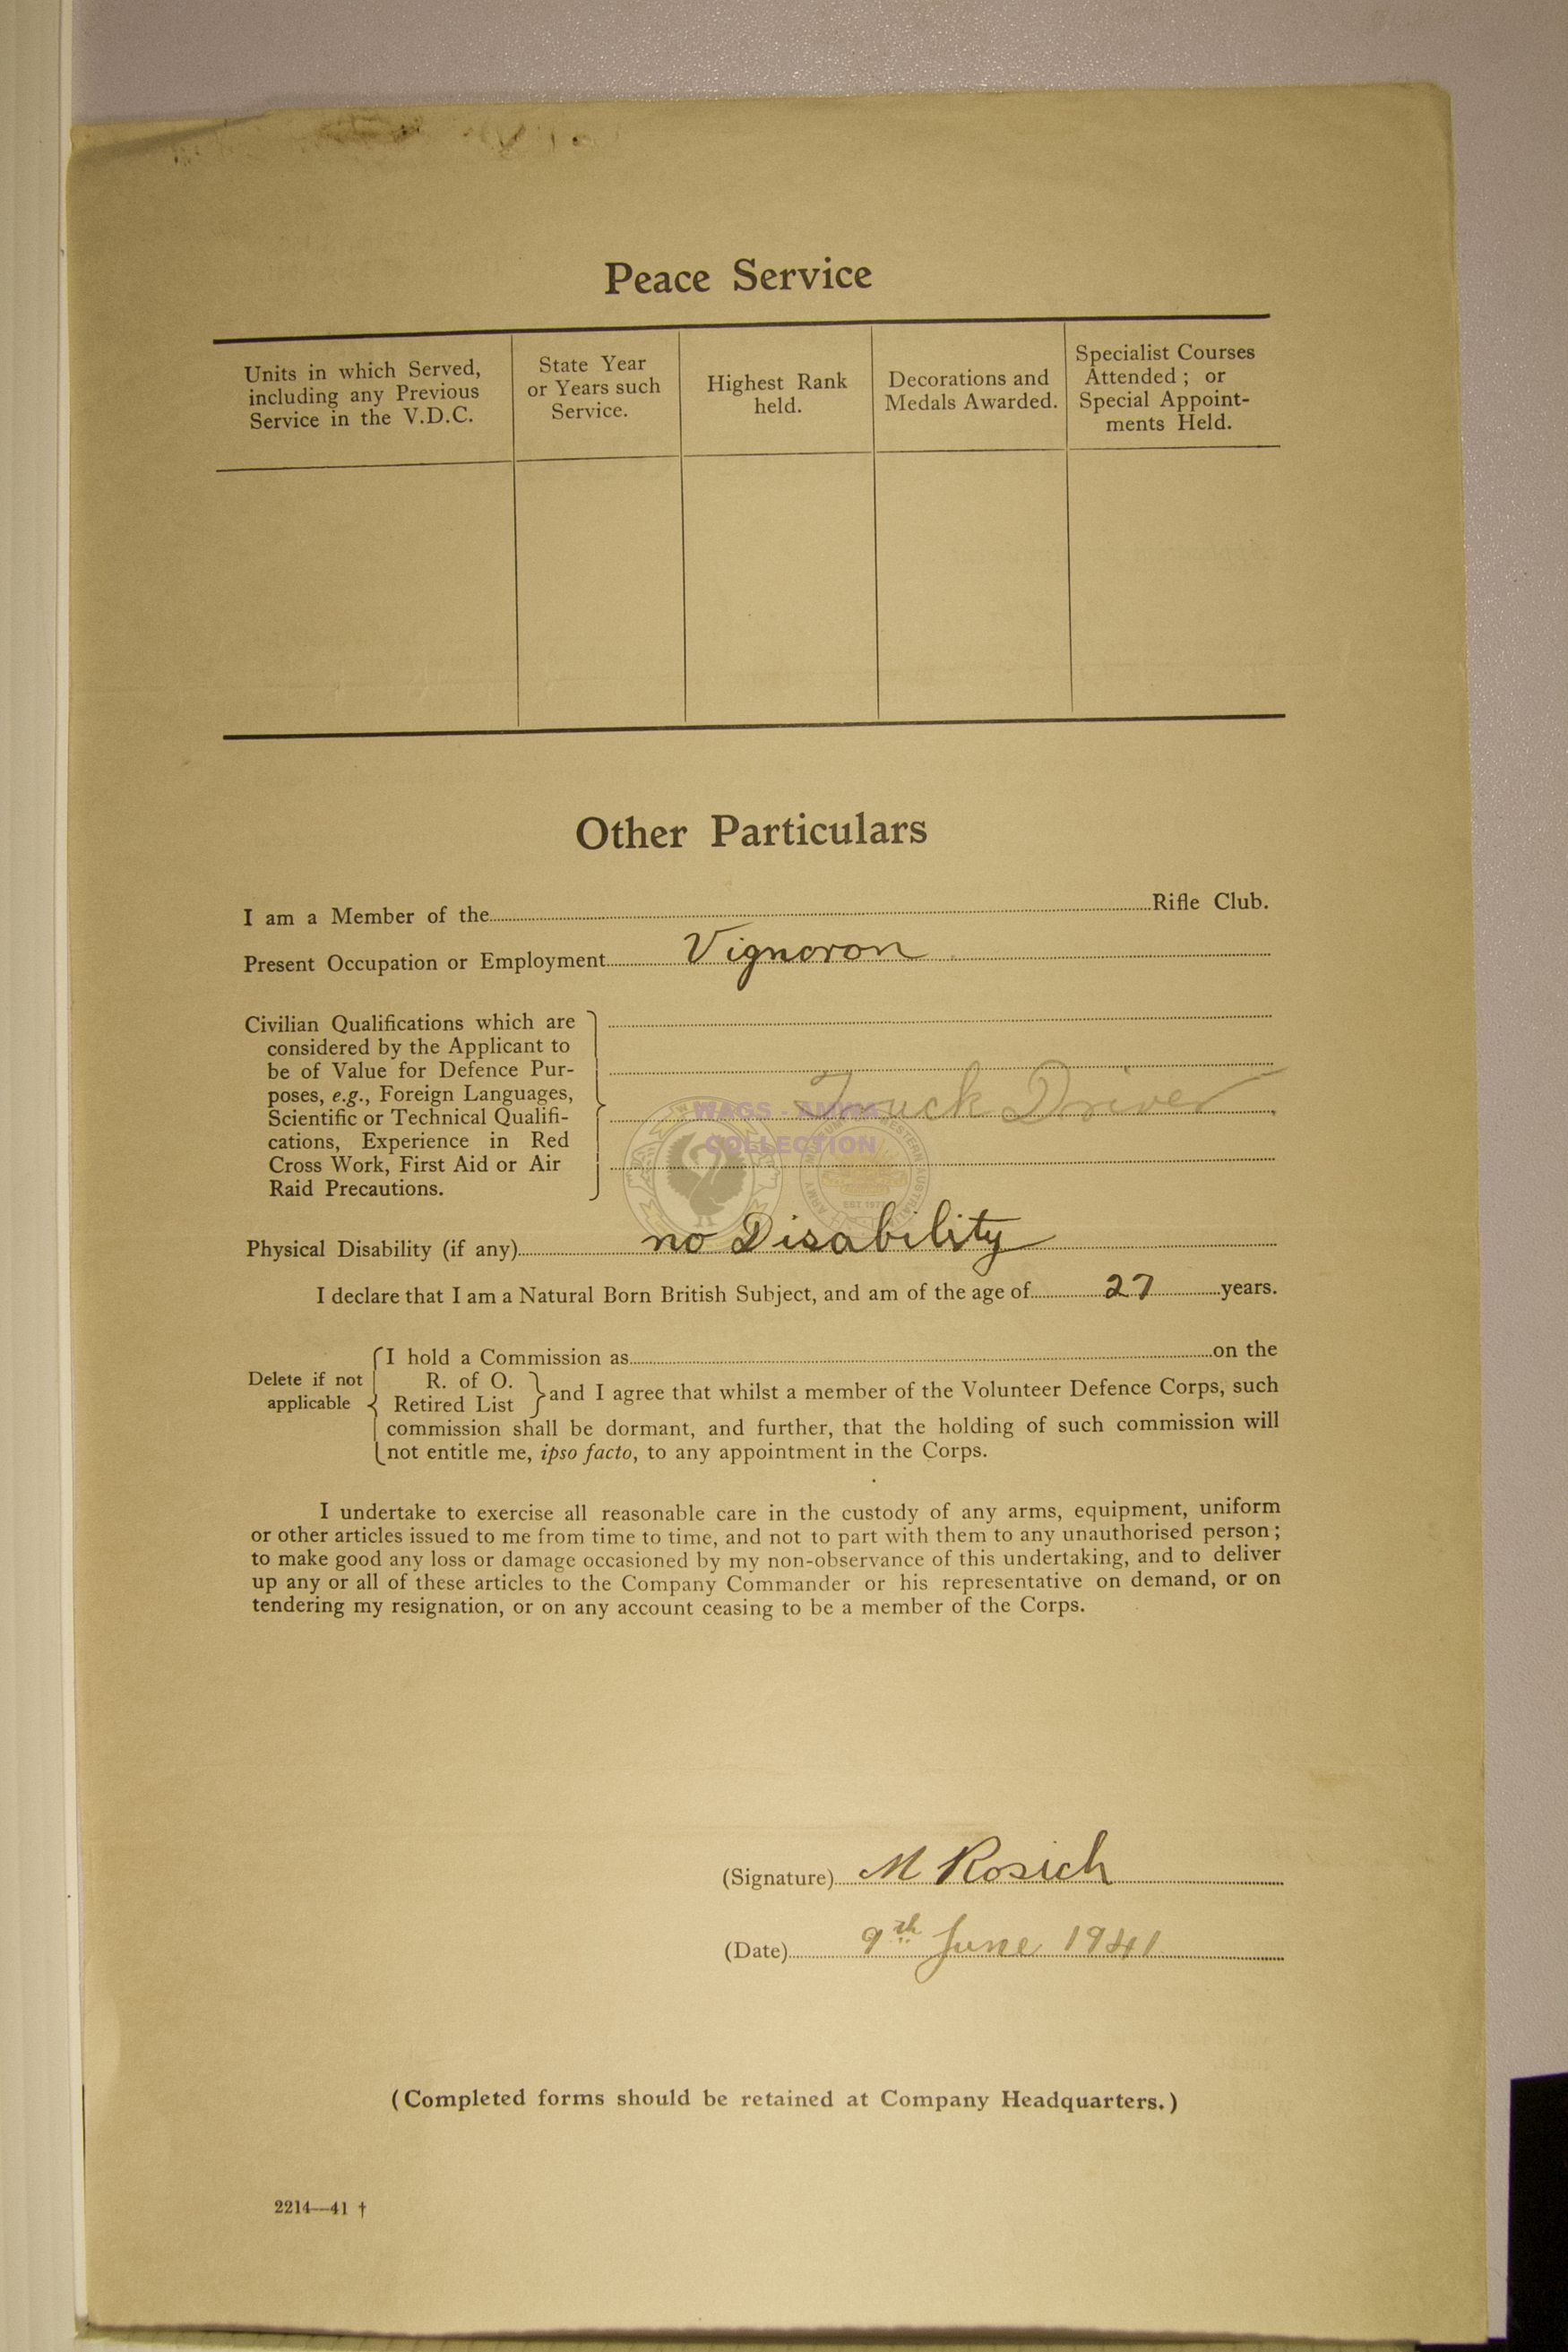 Peace Service
Units in which Served, including any Previous Service in the V.D.C.
State Year or Years such Service.
Highest Rank held.
Decorations and Medals Awarded.
Specialist Courses Attended ; or Special Appoint- ments Held.
Other Particulars
I am a Member of the Rifle Club.
Present Occupation or Employment Vignoron
Civilian Qualifications which are
considered by the Applicant to
be of Value for Defence Pur-
poses, e.g., Foreign Languages,
Scientific or Technical Qualifi-
cations, Experience in Red
Cross Work, First Aid or Air
Raid Precautions.
Truck Driver
WAGS - AMWA
COLLECTION
Physical Disability (if any) no Disability
I declare that I am a Natural Born British Subject, and am of the age of 27 years.
Delete if not applicable
I hold a Commission as on the
R. of O.
Retired List
and I agree that whilst a member of the Volunteer Defence Corps, such
commission shall be dormant, and further, that the holding of such commission will
not entitle me, ipso facto, to any appointment in the Corps.
I undertake to exercise all reasonable care in the custody of any arms, equipment, uniform
or other articles issued to me from time to time, and not to part with them to any unauthorised person ;
to make good any loss or damage occasioned by my non-observance of this undertaking, and to deliver
up any or all of these articles to the Company Commander or his representative on demand, or on
tendering my resignation, or on any account ceasing to be a member of the Corps.
(Signature) M Rosich
(Date) 9th June 1941
(Completed forms should be retained at Company Headquarters.)
2214—41 †